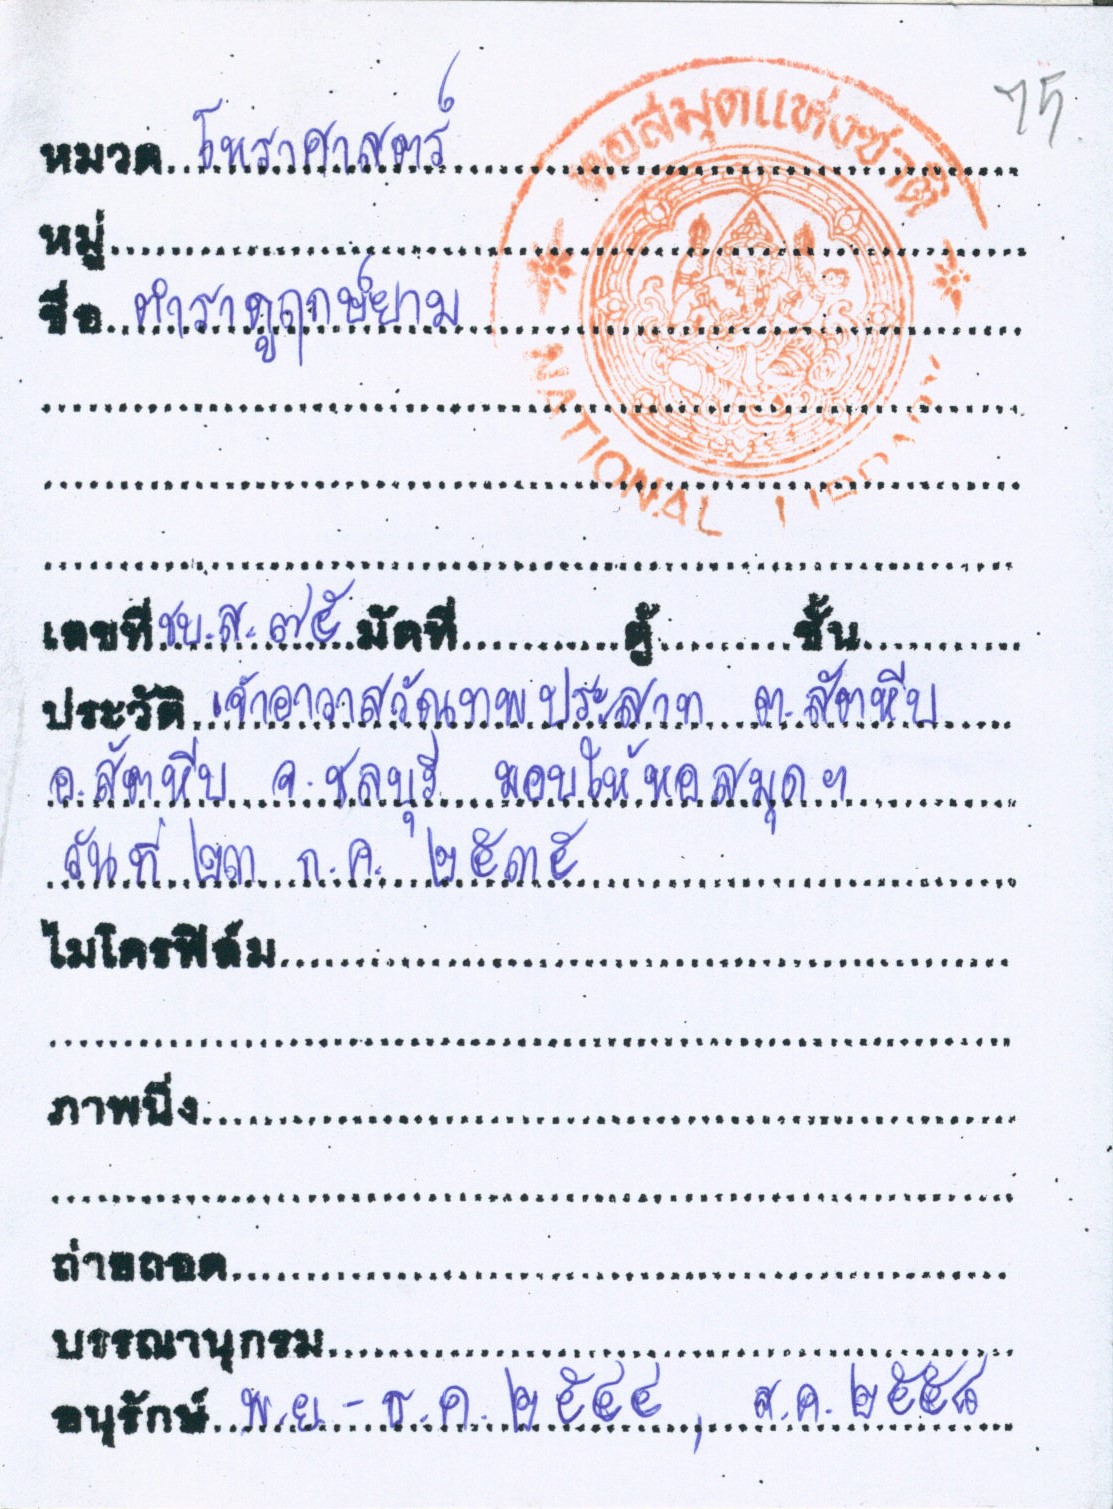 75
หอสมุดแห่งชาติ
NATIONAL LIBRARY
หมวด โหราศาสตร์
หมู่
ชื่อ ตำราดูฤกษ์ยาม
เลขที่ ชบ.ส. ๗๕ มัดที่ ตู้ ชั้น
ประวัติ เจ้าอาวาสวัดเทพประสาท ต.สัตหีบ
อ.สัตหีบ จ.ชลบุรี มอบให้หอสมุดฯ
วันที่ ๒๓ ก.ค. ๒๕๓๕
ไมโครฟิล์ม
ภาพนิ่ง
ถ่ายถอด
บรรณานุกรม
อนุรักษ์ พ.ย. - ธ.ค. ๒๕๔๔, ส.ค. ๒๕๕๘